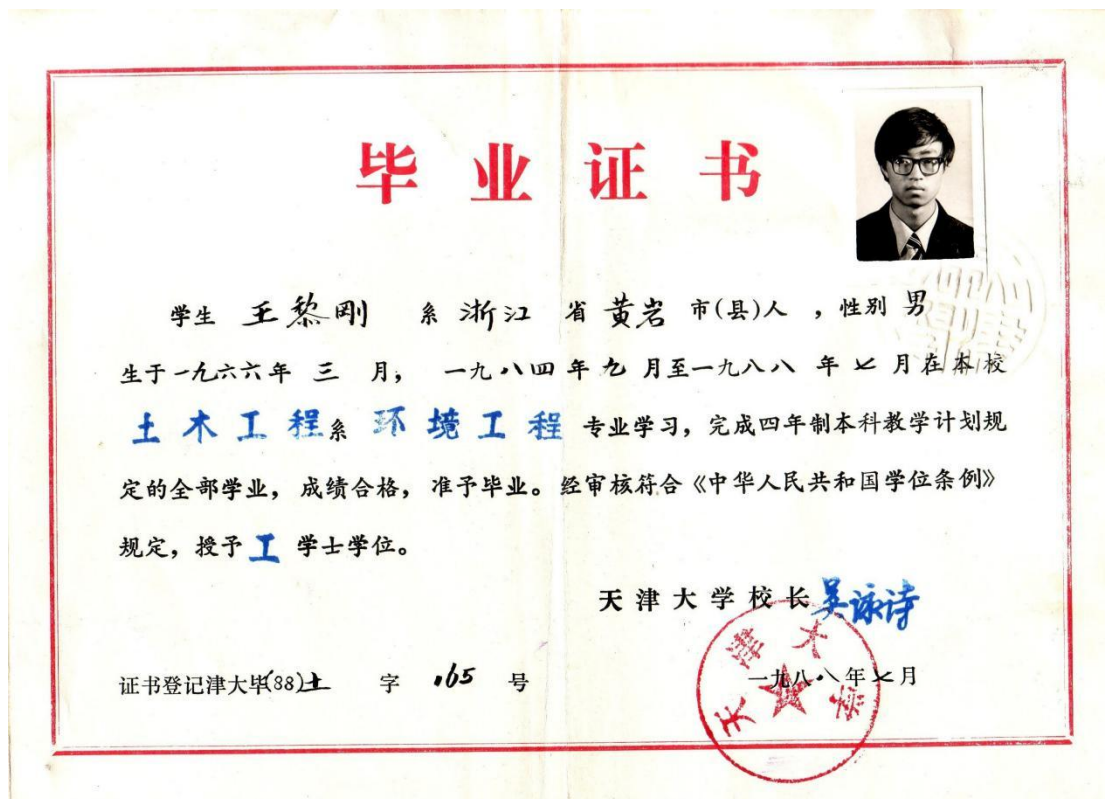 毕业证书
学生 王黎刚 系 浙江 省 黄岩 市(县)人 ,性别 男
生于一九六六年 三 月, 一九八四年九月至一九八八年七月在本校
土木工程系 环境工程 专业学习,完成四年制本科教学计划规
定的全部学业,成绩合格,准予毕业。经审核符合《中华人民共和国学位条例》
规定,授予 工 学士学位。
天津大学校长 吴咏诗
证书登记津大毕(88)土 字 165 号
一九八八年七月
天津大学